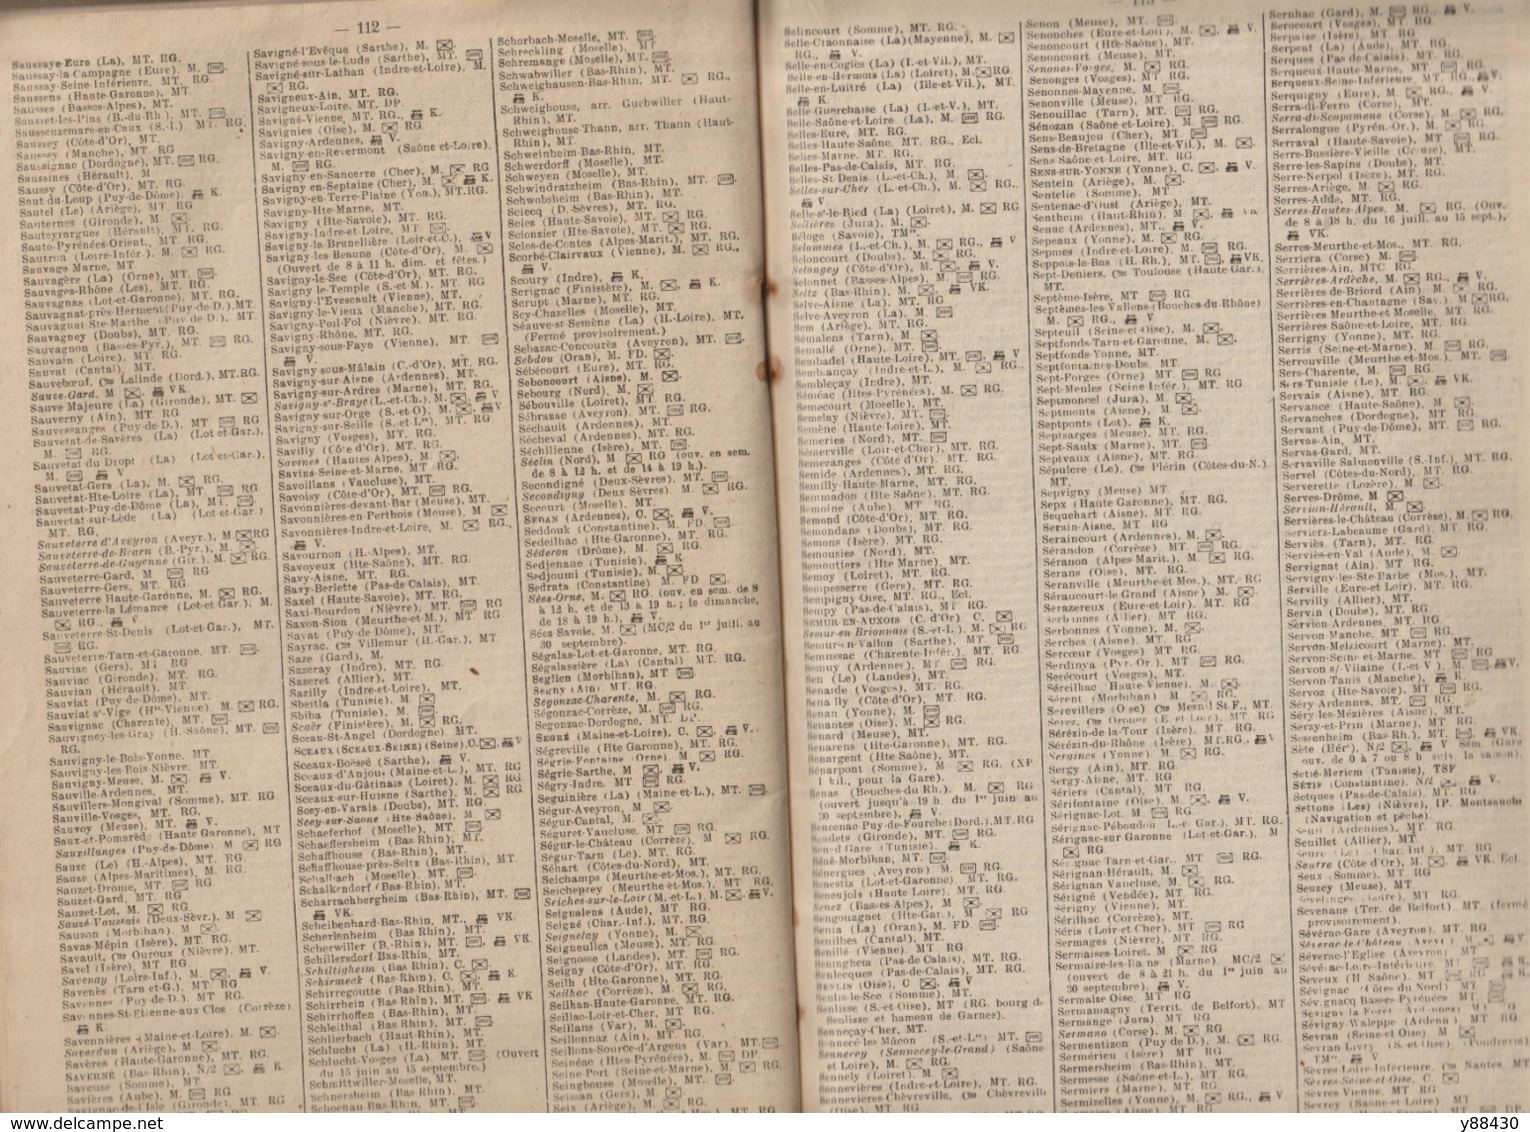 — 112 —
Saussaye-Eure (La), MT. RG.
Saussay-la Campagne (Eure), M.
Saussay-Seine Inférieure, MT. RG.
Saussens (Haute-Garonne), MT
Sausses (Basses-Alpes), MT.
Sausset-les-Pins (B.-du-Rh.), MT.
Sausseuzemare-en-Caux (S.-I.) MT. RG.
Saussey (Côte-d'Or), MT.
Saussey (Manche), MT. RG
Saussignac (Dordogne), MT. RG.
Saussines (Hérault), M
Saussy (Côte-d'Or), MT. RG.
Saut du-Loup (Puy-de-Dôme), K
Sautel (Le) (Ariège), MT. RG
Sauternes (Gironde), M.
Sauteyrargues (Hérault), MT.
Sauto-Pyrénées-Orient., MT. RG.
Sautron (Loire-Infér.), M. RG.
Sauvage Marne, MT
Sauvagère (La) (Orne), MT.
Sauvages-Rhône (Les), MT. RG.
Sauvagnas (Lot-et-Garonne), MT. RG.
Sauvagnat-près-Herment (Puy-de-D.) MT.
Sauvagnat Ste-Marthe (Puy de-D.), MT.
Sauvagney (Doubs), MT. RG.
Sauvagnon (Basses-Pyr.), MT. RG.
Sauvain (Loire), MT. RG.
Sauvat (Cantal), MT.
Sauvebœuf, Cne Lalinde (Dord.), MT.RG.
Sauve-Gard, M VK.
Sauve Majeure (La) (Gironde), MT.
Sauverny (Ain), MT. RG
Sauvessanges (Puy-de-D.), MT. RG.
Sauvetat-de-Savères (La) (Lot-et-Gar.),
M. RG.
Sauvetat du Dropt (La) (Lot-et-Gar.),
M. V
Sauvetat-Gers (La), M. RG.
Sauvetat-Hte-Loire (La), MT. RG
Sauvetat-Puy-de-Dôme (La), MT.
Sauvetat-sur-Lède (La) (Lot-et-Gar)
MT. RG.
Sauveterre d'Aveyron (Aveyr.), M. RG
Sauveterre-de-Béarn (B.-Pyr.), M.
Sauveterre-de-Guyenne (Gir.), M. RG.
Sauveterre-Gard, M RG
Sauveterre-Gers, MT. RG.
Sauveterre Haute-Garonne, M. RG.
Sauveterre-la Lémance (Lot-et Gar.), M.
RG., V
Sauveterre-St-Denis (Lot-et-Gar.), MT.
RG.
Sauveterre-Tarn-et-Garonne, MT.
Sauviac (Gers), MT RG.
Sauviac (Gironde), MT. RG.
Sauvian (Hérault), MT
Sauviat (Puy-de Dôme), MT.
Sauviat st-Vige (Hte Vienne), M. RG.
Sauvignac (Charente), MT.
Sauvigney-les Gray (H. Saône), MT
RG.
Sauvigny-le-Bois-Yonne, MT.
Sauvigny-les-Bois-Nièvre, MT.
Sauvigny-Meuse, M. V.
Sauville-Ardennes, MT.
Sauvillers-Mongival (Somme), MT. RG
Sauville-Vosges, MT. RG.
Sauvoy (Meuse), MT. V
Saux-et-Pomarède (Haute Garonne), MT
Sauxillanges (Puy-de-Dôme), M RG
Sauze (Le) (H.-Alpes), MT. RG.
Sauze (Alpes-Maritimes), M. RG.
Sauzet-Drôme, MT RG
Sauzet-Gard, MT. RG.
Sauzet-Lot, M. RG
Sauzé-Vaussais (Deux-Sèvr.), M
Sauzon (Morbihan), M
Savas-Mépin (Isère), MT. RG.
Savault, Cne Ouroux (Nièvre), MT.
Savel (Isère), MT RG
Savenay (Loire-Inf.), M. V.
Savenès (Tarn et G.), MT. RG.
Savennes (Puy-de-D.), MT RG.
Savennes-St-Etienne-aux Clos (Corrèze)
K.
Savennières (Maine-et-Loire), M.
Saverdun (Ariège), M.
Savères (Haute-Garonne), MT. RG.
SAVERNE (Bas-Rhin), N/2 K.
Saveuse (Somme), MT
Savières (Aube), M. RG.
Savignac-de-l'Isle (Gironde), MT. RG
Savigné-l'Evêque (Sarthe), M.
Savigné-sous le-Lude (Sarthe), MT.
Savigné-sur-Lathan (Indre-et-Loire), M.
RG.
Savigneux-Ain, MT. RG.
Savigneux-Loire, MT. DP.
Savigné-Vienne, MT. RG., K.
Savignies (Oise), M. RG
Savigny-Ardennes, V.
Savigny-en-Revermont (Saône-et-Loire),
M. RG.
Savigny-en-Sancerre (Cher), M. RG
Savigny-en-Septaine (Cher), M. K.
Savigny-en-Terre-Plaine (Yon.), MT.RG.
Savigny-Hte-Marne, MT.
Savigny (Hte-Savoie), MT. RG.
Savigny-Indre-et-Loire, MT
Savigny-la-Brunellière (Loir-et-C.), V
Savigny-les Beaune (Côte-d'Or), M.
(Ouvert de 8 à 11 h. dim. et fêtes.)
Savigny-le-Sec (Côte-d'Or), MT. RG.
Savigny-le-Temple (S.-et-M.), MT. RG
Savigny-l'Evescault (Vienne), MT.
Savigny-le-Vieux (Manche), MT. RG.
Savigny-Poil-Fol (Nièvre), MT. RG.
Savigny-Rhône, MT. RG.
Savigny-sous-Faye (Vienne), MT.
V.
Savigny sous-Mâlain (C.-d'Or), MT. RG.
Savigny-sur-Aisne (Ardennes), MT.
Savigny-sur-Ardres (Marne), MT. RG.
Savigny-sr-Braye (L.-et-Ch.), M. V
Savigny-sur-Orge (S.-et-O), M. V
Savigny-sur-Seille (S.-et-Lre), MT. RG
Savigny (Vosges), MT. RG.
Savilly (Côte-d'Or), MT.
Savines (Hautes-Alpes), M.
Savins-Seine-et-Marne, MT RG.
Savoillans (Vaucluse), MT.
Savoisy (Côte-d'Or), MT. RG
Savonnières-devant-Bar (Meuse), MT.
Savonnières-en-Perthois (Meuse), M
Savonnières-Indre-et-Loire, M. RG.,
V.
Savournon (H.-Alpes), MT.
Savoyeux (Hte-Saône), MT.
Savy-Aisne, MT. RG.
Savy-Berlette (Pas-de-Calais), MT.
Saxel (Haute-Savoie), MT. RG.
Saxi-Bourdon (Nièvre), MT.
Saxon-Sion (Meurthe-et-M.), MT. RG
Sayat (Puy-de Dôme), MT.
Sayrac, Cne Villemur (H.-Gar.), MT.
Saze (Gard), M.
Sazeray (Indre), MT. RG.
Sazeret (Allier), MT.
Sazilly (Indre-et-Loire), MT.
Sbeitla (Tunisie), M
Sbiba (Tunisie), M.
Scaër (Finistère), M. RG.
Sceau-St-Angel (Dordogne), MT.
SCEAUX (SCEAUX-SEINE) (Seine),C. V
Sceaux-Boëssé (Sarthe), V.
Sceaux-d'Anjou (Maine-et-L.), MT. RG.
Sceaux-du-Gâtinais (Loiret), M. RG
Sceaux-sur-Huisne (Sarthe), M. RG
Scey-en-Varais (Doubs), MT. RG.
Scey-sur-Saône (Hte Saône), M
Schaeferhof (Moselle), MT.
Schaeffersheim (Bas-Rhin), MT.
Schaffhouse (Bas-Rhin), MT.
Schaffhouse-près-Seltz (Bas-Rhin), MT.
Schalbach (Moselle), MT.
Schalkendorf (Bas-Rhin), MT.
Scharrachbergheim (Bas-Rhin), MT.
VK.
Scheibenhard-Bas-Rhin, MT., VK
Scherlenheim (Bas Rhin), MT.
Scherwiller (B.-Rhin), MT. VK
Schillersdorf Bas-Rhin, MT.
Schiltigheim (Bas Rhin), C.
Schirmeck (Bas-Rhin), C. K
Schirregoutte (Bas-Rhin), MT.
Schirrhein (Bas-Rhin), MT. VK
Schirrhoffen (Bas-Rhin), MT.
Schleithal (Bas Rhin), MT.
Schlierbach (Haut-Rhin), MT.
Schlucht (La) (H.-Rhin), MT.
Schlucht-Vosges (La), MT. (Ouvert
du 15 juin au 15 septembre.)
Schmittwiller-Moselle, MT.
Schnersheim (Bas-Rhin), MT.
Schoenau-Bas-Rhin, MT.
Schorbach-Moselle, MT.
Schreckling (Moselle), MT
Schremange (Moselle), MT.
Schwabwiller (Bas-Rhin), MT.
Schweighausen-Bas-Rhin, MT. RG.,
K.
Schweighouse, arr. Guebwiller (Haut-
Rhin), MT.
Schweighouse-Thann, arr. Thann (Haut-
Rhin), MT.
Schweinheim-Bas-Rhin, MT.
Schwerdorff (Moselle), MT.
Schweyen (Moselle), MT.
Schwindratzheim (Bas-Rhin), MT.
Schwobsheim (Bas-Rhin), MT.
Sciecq (D. Sèvres), MT. RG.
Scies (Haute-Savoie), MT. RG.
Scionzier (Hte-Savoie), M. RG.
Sclos-de-Contes (Alpes-Marit.), MT. RG.
Scorbé-Clairvaux (Vienne), M. RG.,
V.
Scoury (Indre), K.
Scrignac (Finistère), M. K.
Scrupt (Marne), MT. RG.
Scy-Chazelles (Moselle), MT.
Séauve-st-Semène (La) (H.-Loire), MT.
(Fermé provisoirement.)
Sebazac-Concourès (Aveyron), MT.
Sebdou (Oran), M. FD.
Sébécourt (Eure), MT. RG.
Seboncourt (Aisne), M.
Sebourg (Nord), M. RG.
Sébouville (Loiret), MT.
Sébrazac (Aveyron), MT. RG.
Séchault (Ardennes), MT.
Sécheval (Ardennes), MT. RG.
Séchilienne (Isère), MT.
Séclin (Nord), M. RG (ouv. en sem.
de 8 à 12 h. et de 14 à 19 h.).
Secondigné (Deux-Sèvres), MT.
Secondigny (Deux Sèvres), M. RG.
Secourt (Moselle), MT.
SEDAN (Ardennes), C. V.
Seddouk (Constantine), M. FD.
Sedeilhac (Hte-Garonne), MT. RG.
Séderon (Drôme), M. RG.
Sedjenane (Tunisie), K
Sedjoumi (Tunisie), M.
Sedrata (Constantine) M. FD
Sées-Orne, M. RG (ouv. en sem. de 8
à 12 h. et de 13 à 19 h.; le dimanche,
de 18 à 19 h.), V.
Séez Savoie, M. (MC/2 du 1er juill. au
30 septembre).
Ségalas-Lot-et-Garonne, MT. RG.
Ségalassière (La) (Cantal) MT. RG.
Séglien (Morbihan) MT
Segny (Ain), MT. RG
Segonzac-Charente, M. RG.
Ségonzac-Corrèze, M RG.
Segonzac-Dordogne, MT. DP.
SEGRÉ (Maine-et-Loire), C. V.
Ségreville (Hte Garonne), MT. RG.
Ségrie-Fontaine (Orne), M. RG.
Ségrie-Sarthe, M V.
Ségry-Indre, MT
Seguinière (La) (Maine-et-L.), MT.
Ségur-Aveyron, M.
Ségur-Cantal, M.
Séguret-Vaucluse, MT RG.
Ségur-le-Château (Corrèze), M RG.
Ségur-Tarn (Le), MT. RG.
Séhart (Côtes-du-Nord), MT.
Seichamps (Meurthe-et-Mos.), MT. RG.
Seicheprey (Meurthe et-Mos.), MT RG.
Seiches-sur-le-Loir (M.-et-L.), M. V.
Seignalens (Aude), MT. RG.
Seigné (Char.-Inf.), MT. RG.
Seignelay (Yonne), M. RG.
Seigneulles (Meuse), MT. RG.
Seignosse (Landes), MT. RG.
Seigny (Côte-d'Or), MT. RG.
Seilh (Hte-Garonne), MT. RG.
Seilhac (Corrèze), M.
Seilhan-Haute-Garonne, MT. RG.
Seillac-Loir-et-Cher, MT. RG
Seillans (Var), M.
Seillonnaz (Ain), MT.
Seillons-Source-d'Argens (Var), MT.
Seinéac (Htes-Pyrénées), M. DP
Seine-Port (Seine-et-Marne), M. RG
Seingbouse (Moselle), MT.
Seissan (Gers), M.
Seix (Ariège), M. RG.
Selincourt (Somme), MT. RG.
Selle-Craonnaise (La) (Mayenne), M.
RG., V.
Selle-en-Coglès (La) (I.-et-Vil.), MT.
Selle-en-Hermots (La) (Loiret), M. RG
Selle-en-Luitré (La) (Ille-et-Vil.), MT.
K
Selle-Guerchaise (La) (I.-et-V.), MT.
Selle-Saône-et-Loire (La), M. RG.
Selles-Eure, MT. RG.
Selles-Haute-Saône, MT. RG., Ecl.
Selles-Marne, MT. RG.
Selles-Pas-de-Calais, MT. RG.
Selles-St-Denis (L.-et-Ch.), M.
Selles-sur-Cher (L.-et-Ch.), M. RG.,
V.
Selle-st-le-Bied (La) (Loiret), M. RG
Sellières (Jura), M.
Séloge (Savoie), TMre
Selommes (L.-et-Ch.), M. RG., V
Seloncourt (Doubs), M. RG.
Selongey (Côte-d'Or), M. V.
Selonnet (Basses-Alpes), M. RG.
Seltz (Bas-Rhin), M. VK.
Selve-Aisne (La), MT. RG.
Selve-Aveyron (La), M.
Sem (Ariège), MT. RG.
Sémalens (Tarn), M.
Semallé (Orne), MT. RG.
Sembadel (Haute-Loire), MT. V
Semblançay (Indre-et-L.), M. RG.,
Sembleçay (Indre), MT.
Séméac (Htes Pyrénées), M. RG.
Semecourt (Moselle), MT.
Semelay (Nièvre), MT.
Semène (Haute-Loire), MT.
Semeries (Nord), MT.
Semerville (Loir-et-Cher), MT.
Semezanges (Côte d'Or), MT. RG.
Semide (Ardennes), MT. RG.
Semilly-Haute-Marne, MT. RG.
Semmadon (Hte Saône), MT. RG.
Semoine (Aube) MT. RG
Semond (Côte-d'Or), MT.
Semondans (Doubs), MT.
Semons (Isère), MT. RG.
Semousies (Nord), MT.
Semoutiers (Hte Marne), MT.
Semoy (Loiret), MT. RG.
Sempesserre (Gers), MT. RG.
Sempigny Oise, MT. RG., Ecl.
Sempy (Pas-de-Calais), MT RG.
SEMUR-EN-AUXOIS (C. d'Or), C.
Semur-en-Brionnais (S.-et-L.), M. RG
Semur-en-Vallon (Sarthe), MT.
Semussac (Charente-Infér.), MT. RG.
Semuy (Ardennes), MT RG.
Sen (Le) (Landes), MT. RG.
Senaide (Vosges), MT. RG.
Senailly (Côte-d'Or), MT. RG.
Senan (Yonne), M.
Senantes (Oise), M. RG.
Senard (Meuse), MT.
Senarens (Hte-Garonne), MT. RG.
Senargent (Hte Saône), MT.
Sénarpont (Somme), M. RG. (XP
1 kil., pour la Gare).
Senas (Bouches-du Rh.), M. RG
(ouvert jusqu'à 19 h. du 1er juin au
30 septembre), V.
Sencenac-Puy-de-Fourche (Dord.), MT.RG
Sendets (Gironde), MT. RG.
Sened Gare (Tunisie), K.
Séné-Morbihan, MT.
Sénergues (Aveyron), M. RG
Senestis (Lot-et-Garonne), MT. RG.
Seneujols (Haute Loire), MT. RG.
Senez (Bas-es Alpes), M
Sengouagnet (Hte-Gar.), M RG
Senia (La) (Oran), M. FD
Senilhes (Cantal), MT.
Senillé (Vienne), MT. RG
Seninghem (Pas-de Calais), MT. RG.
Senlecques (Pas-de-Calais), MT. RG.
SENLIS (Oise), C V
Senlis-le-Sec (Somme), MT.
Senlisse (S.-et-Oise), MT (RG. bourg d.
Senlisse et hameau de Garnes).
Senneçay-Cher, MT.
Sennecé les Mâcon (S.-et-Lre) MT.
Sennecey (Sennecey-le-Grand) (Saône
et Loire), M RG
Sennely (Loiret), M.
Sennevières (Indre-et-Loire), MT. RG.
Sennevières-Chèvreville, Cne Chèvrevill.
(Oise), MT. RG
Senon (Meuse), MT.
Senonches (Eure-et-Loir), M. V.
Senoncourt (Hte-Saône), MT.
Senoncourt (Meuse), MT.
Senones-Vosges, M. RG.
Senonges (Vosges), MT. RG.
Senonnes-Mayenne, M.
Senonville (Meuse), MT RG.
Senouillac (Tarn), MT.
Sénozan (Saône-et-Loire), M. RG.
Sens-Beaujeu (Cher), MT
Sens-de-Bretagne (Ille-et-Vil.), M.
Sens Saône-et-Loire, MT. RG.
SENS-SUR-YONNE (Yonne), C. V.
Sentein (Ariège), M.
Sentelie (Somme), MT
Sentenac-d'Oust (Ariège), MT.
Sentheim (Haut-Rhin), M.
Senuc (Ardennes), MT., V.
Sepeaux (Yonne), M. RG.
Sepmes (Indre-et-Loire), M. RG.
Seppois-le-Bas (H. Rh.), MT. VK
Sept-Deniers, Cne Toulouse (Haute-Gar.),
MT.
Septème-Isère, MT RG
Septèmes-les-Vallons (Bouches-du-Rhône)
M. RG., V
Septeuil (Seine-et-Oise), M.
Septfonds-Tarn-et-Garonne, M.
Septfonds-Yonne, MT
Septfontaines-Doubs, MT.
Sept-Forges (Orne) MT RG.
Sept-Meules (Seine Infér.), MT. RG.
Septmoncel (Jura), M.
Septmonts (Aisne), M.
Septponts (Lot), K.
Septsarges (Meuse), MT. RG.
Sept-Saulx (Marne), MT.
Septvaux (Aisne), MT. RG.
Sépulcre (Le), Cne Plérin (Côtes-du-N.)
MT.
Sepvigny (Meuse) MT
Sepx (Haute Garonne), MT. RG.
Sequehart (Aisne), MT. RG.
Serain-Aisne, MT RG
Seraincourt (Ardennes), M.
Sérandon (Corrèze) MT RG.
Séranon (Alpes Marit.), M RG
Serans (Oise), MT. RG.
Seranville (Meurthe-et Mos.), MT. RG
Séraucourt-le Grand (Aisne) M.
Serazereux (Eure-et-Loir), MT. RG.
Serbannes (Allier) MT. RG.
Serbonnes (Yonne), M.
Serches (Aisne), MT. RG
Sercœur (Vosges) MT RG
Serdinya (Pyr. Or.), MT RG.
Serécourt (Vosges), MT.
Séreilhac Haute Vienne), M.
Sérent (Morbihan) M RG.
Serevillers (Oise) Cne Mesnil St F., MT.
Serez, Cne Oroucr (E et Loir), MT. RG.
Sérézin-de-la-Tour (Isère), MT. RG.
Sérézin-du-Rhône (Isère) MT.RG., V
Sergines (Yonne), M. RG.
Sergy (Ain), MT RG.
Sergy-Aisne, MT RG
Sériers (Cantal), MT.
Sérifontaine (Oise), M. V.
Sérignac-Lot, M. RG.
Sérignac-Péboudou L.-et Gar.), MT. RG.
Sérignac-sur Garonne (Lot-et-Gar.), M
RG.
Sérignac-Tarn-et-Gar., MT RG.
Sérignan-Hérault, M.
Sérignan Vaucluse, M. RG.
Sérigné (Vendée), MT. RG.
Sérigny (Vienne), MT.
Sérilhac (Corrèze), MT.
Séris (Loir et Cher) MT. RG.
Sermages (Nièvre), MT.
Sermaises-Loiret, M RG
Sermaize-les-Bains (Marne), MC/2
(ouvert de 8 à 21 h. du 1er juin au
30 septembre), V.
Sermaize Oise, MT RG
Sermamagny (Territ. de Belfort), MT
Sermange (Jura) MT RG
Sermano (Corse), M RG
Sermentizon (Puy de D.), M. RG.
Sermérieu (Isère) MT RG
Sermersheim (Bas-Rh) MT.
Sermesse (Saône-et-L.), MT. RG.
Sermiers (Marne), MT. RG.
Sermizelles (Yonne), M. RG., V
Sernhac (Gard), M. RG., V.
Serocourt (Vosges), MT. RG.
Serpaize (Isère) MT. RG
Serpent (La) (Aude), MT.
Serques (Pas de-Calais), MT. RG.
Serqueux-Haute Marne, MT RG.
Serqueux-Seine-Inférieure, MT RG. V.
Serquigny (Eure), M. RG., V
Serra-di-Ferro (Corse), MT.
Serra-di-Scopamene (Corse), M. RG.
Serralongue (Pyrén.-Or.), M. RG
Serraval (Haute-Savoie) MT RG.
Serre-Bussière-Vieille (Creuse), MT.
Serre-les-Sapins (Doubs), MT.
Serre-Nerpol (Isère), MT. RG.
Serres-Ariège, M. RG.
Serres-Aude, MT. RG.
Serres-Hautes-Alpes, M. RG. (Ouv.
de 8 à 18 h. du 16 juill. au 15 sept.),
VK.
Serres-Meurthe-et-Mos., MT. RG.
Serriera (Corse) M.
Serrières-Ain, MTC RG.
Serrières-Ardèche, M. RG., V.
Serrières-de-Briord (Ain), M. RG
Serrières-en-Chantagne (Sav.) M RG.
Serrières Meurthe-et Moselle, MT. RG.
Serrières Saône-et-Loire, MT. RG
Serrigny (Yonne), MT. RG.
Serris (Seine-et-Marne), M. RG.
Serrouville (Meurthe-et-Mos.), MT.
Sers-Charente, M. RG
Sers-Tunisie (Le), M. VK.
Servais (Aisne), MT. RG.
Servance (Haute-Saône), M.
Servanches (Dordogne), MT RG
Servant (Puy-de-Dôme), MT. RG.
Servas-Ain, MT.
Servas-Gard, MT.
Servaville Salmonville (S.-Inf.), MT. RG.
Servel (Côtes-du-Nord), MT.
Serverette (Lozère), M.
Serves-Drôme, M RG.
Servian-Hérault, M.
Servières-le-Château (Corrèze), M RG.
Serviers-Labeaume (Gard) MT.
Serviès (Tarn), MT. RG.
Serviès-en-Val (Aude), M.
Servignat (Ain), MT. RG.
Servigny-les Ste Barbe (Mos.), MT.
Serville (Eure-et Loir), MT. RG.
Servilly (Allier), MT RG
Servin (Doubs), MT. RG
Servion-Ardennes, MT RG
Servon Manche, MT RG
Servon-Melzicourt (Marne), MT.
Servon-Seine et Marne, MT RG
Servon s/-Vilaine (I.-et-V), M. V.
Servon-Tanis (Manche), K
Servoz (Hte-Savoie), MT RG
Séry-Ardennes, MT RG.
Séry-les-Mézières (Aisne), MT
Serzy-et-Prin (Marne), MT. RG.
Sessenheim (Bas-Rh.), MT. VK
Sète (Hér), N/2 V Sém (Gare
ouv. de 0 à 7 ou 8 h suiv la saison).
Setié-Meriem (Tunisie), TSF
SÉTIF (Constantine), N/2 V.
Setques (Pas-de-Calais), MT. RG
Settons (Les) (Nièvre), IP. Montsauche
(Navigation et pêche).
Seuil (Ardennes), MT RG.
Seuillet (Allier), MT
Seurre (Côte d'Or), M. VK. Ecl.
Seux (Somme), M. RG
Seuzey (Meuse), MT
Sevelinges (Loire), MT RG
Sevenans (Ter. de Belfort), MT. (fermé
provisoirement)
Sévérac-Gare (Aveyron), MT. RG.
Sévérac-le-Château (Aveyr.) M V
Séverac-l'Eglise (Aveyron), MT RG
Sévérac-Loire-Inférieure, M RG
Seveux (H Saône), MT RG
Sévignac (Côtes du Nord) MT
Sévignacq Basses-Pyrénées MT
Sévigny-Waleppe (Ardenn) MT. RG.
Sevran (Seine-et-Oise) M
Sevran Livry (S.-et-Oise) (Poudrerie)
TMre V
Sèvres Loire-Inférieure, Cne Nantes, MT
Sèvres-Seine-et-Oise, C.
Sevrey (Saône-et Loire) MT
y88430